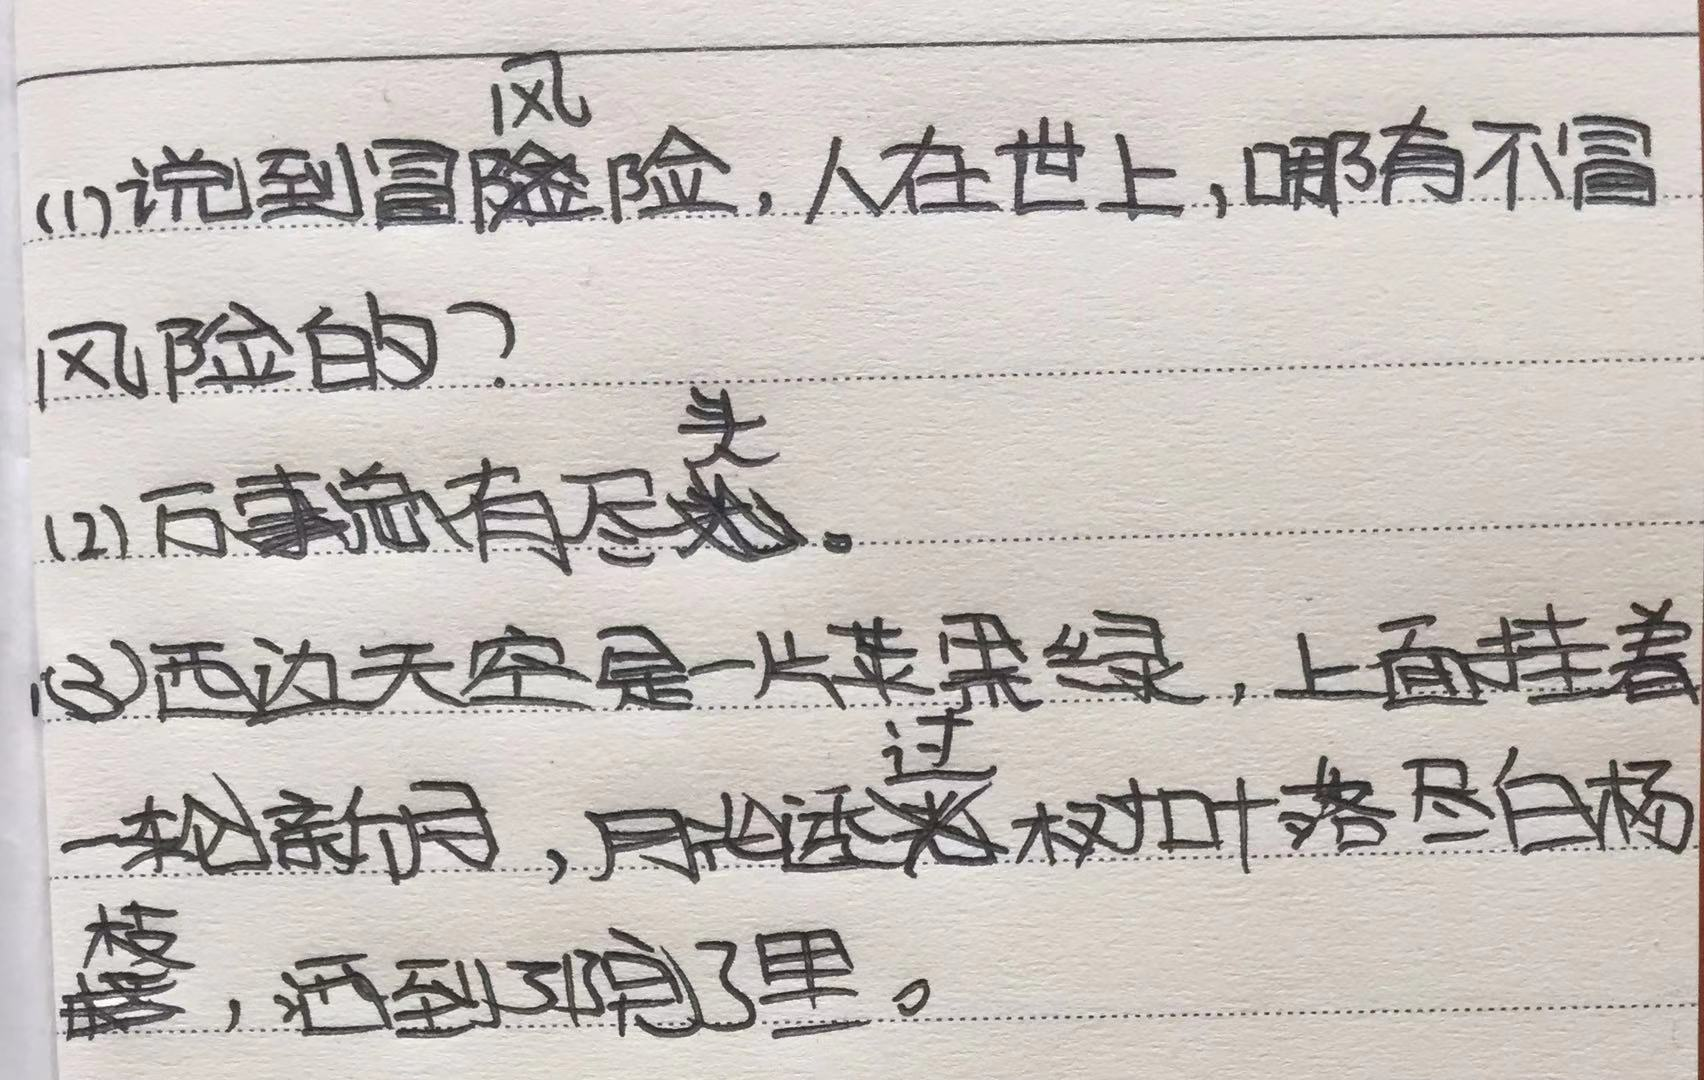 (1)说到冒风险，人在世上，哪有不冒
风险的？
(2)万事总有尽头。
(3)西边天空是一片苹果绿，上面挂着
一轮新月，月光透过权如叶落尽白杨
枝，洒到了院里。